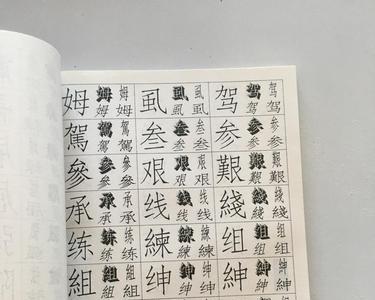 姆 姆 姆 姆 姆 虱 虱 虱 虱 虱 驾 驾 驾 驾 驾
駕 駕 駕 駕 駕 叁 叁 叁 叁 叁 参 参 参 参 参
參 參 參 參 參 艰 艰 艰 艰 艰 艱 艱 艱 艱 艱
承 承 承 承 承 线 线 线 线 线 綫 綫 綫 綫 綫
练 练 练 练 练 練 練 練 練 練 组 组 组 组 组
組 組 組 組 組 绅 绅 绅 绅 绅 紳 紳 紳 紳 紳